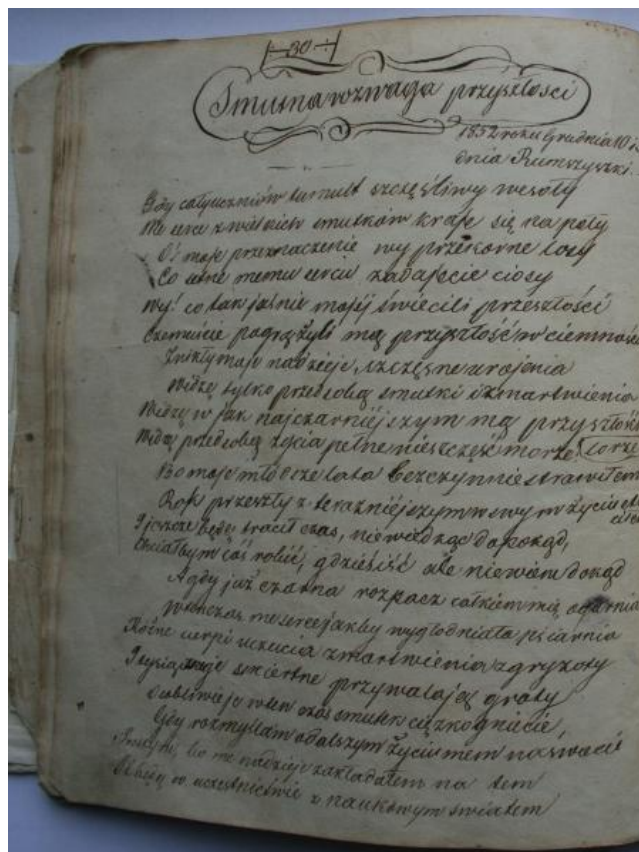 30
Smutna rozwaga przyszłości
1852 roku Grudnia 10
dnia Rumszyszki.
Gdy całych uczniów tumult szczęśliwy wesoły
Me serce z wielkich smutków kraje się na poły
O! moje przeznaczenie wy przekorne losy
Co memu sercu zadajecie ciosy
Wy! co tak jaśnie mojéj świecili przeszłości
Czemuście pogrążyli mą przyszłość w ciemności
Znikły moje nadzieje, szczęsne urojenia
Widzę tylko przed sobą smutki i zmartwienia
Widzę w jak najczarniéjszym mą przyszłość
Widzę przed sobą życia pełne nieszczęść morze.
Bo moje młodsze lata bezczynnie strawiłem
Rok przeszły z teraźniéjszym w swym życiu
I jeszcze będę tracił czas, nie wiedząc dopokąd,
Chciałbym cóś robić, gdzieś iść ale niewiem dokąd
A gdy już czarna rozpacz całkiem mię ogarnia
Wówczas me serce jakby wygłodniała psiarnia
Różne cierpi uczucia zmartwienia zgryzoty
I śmiertne przywalają groty
w ten czas smutku ciężkie gniecie,
Gdy rozmyślam o dalszym życiu mem na świecie
bo me nadzieje zakładałem na tem
w uczestnictwie z naukowym światem